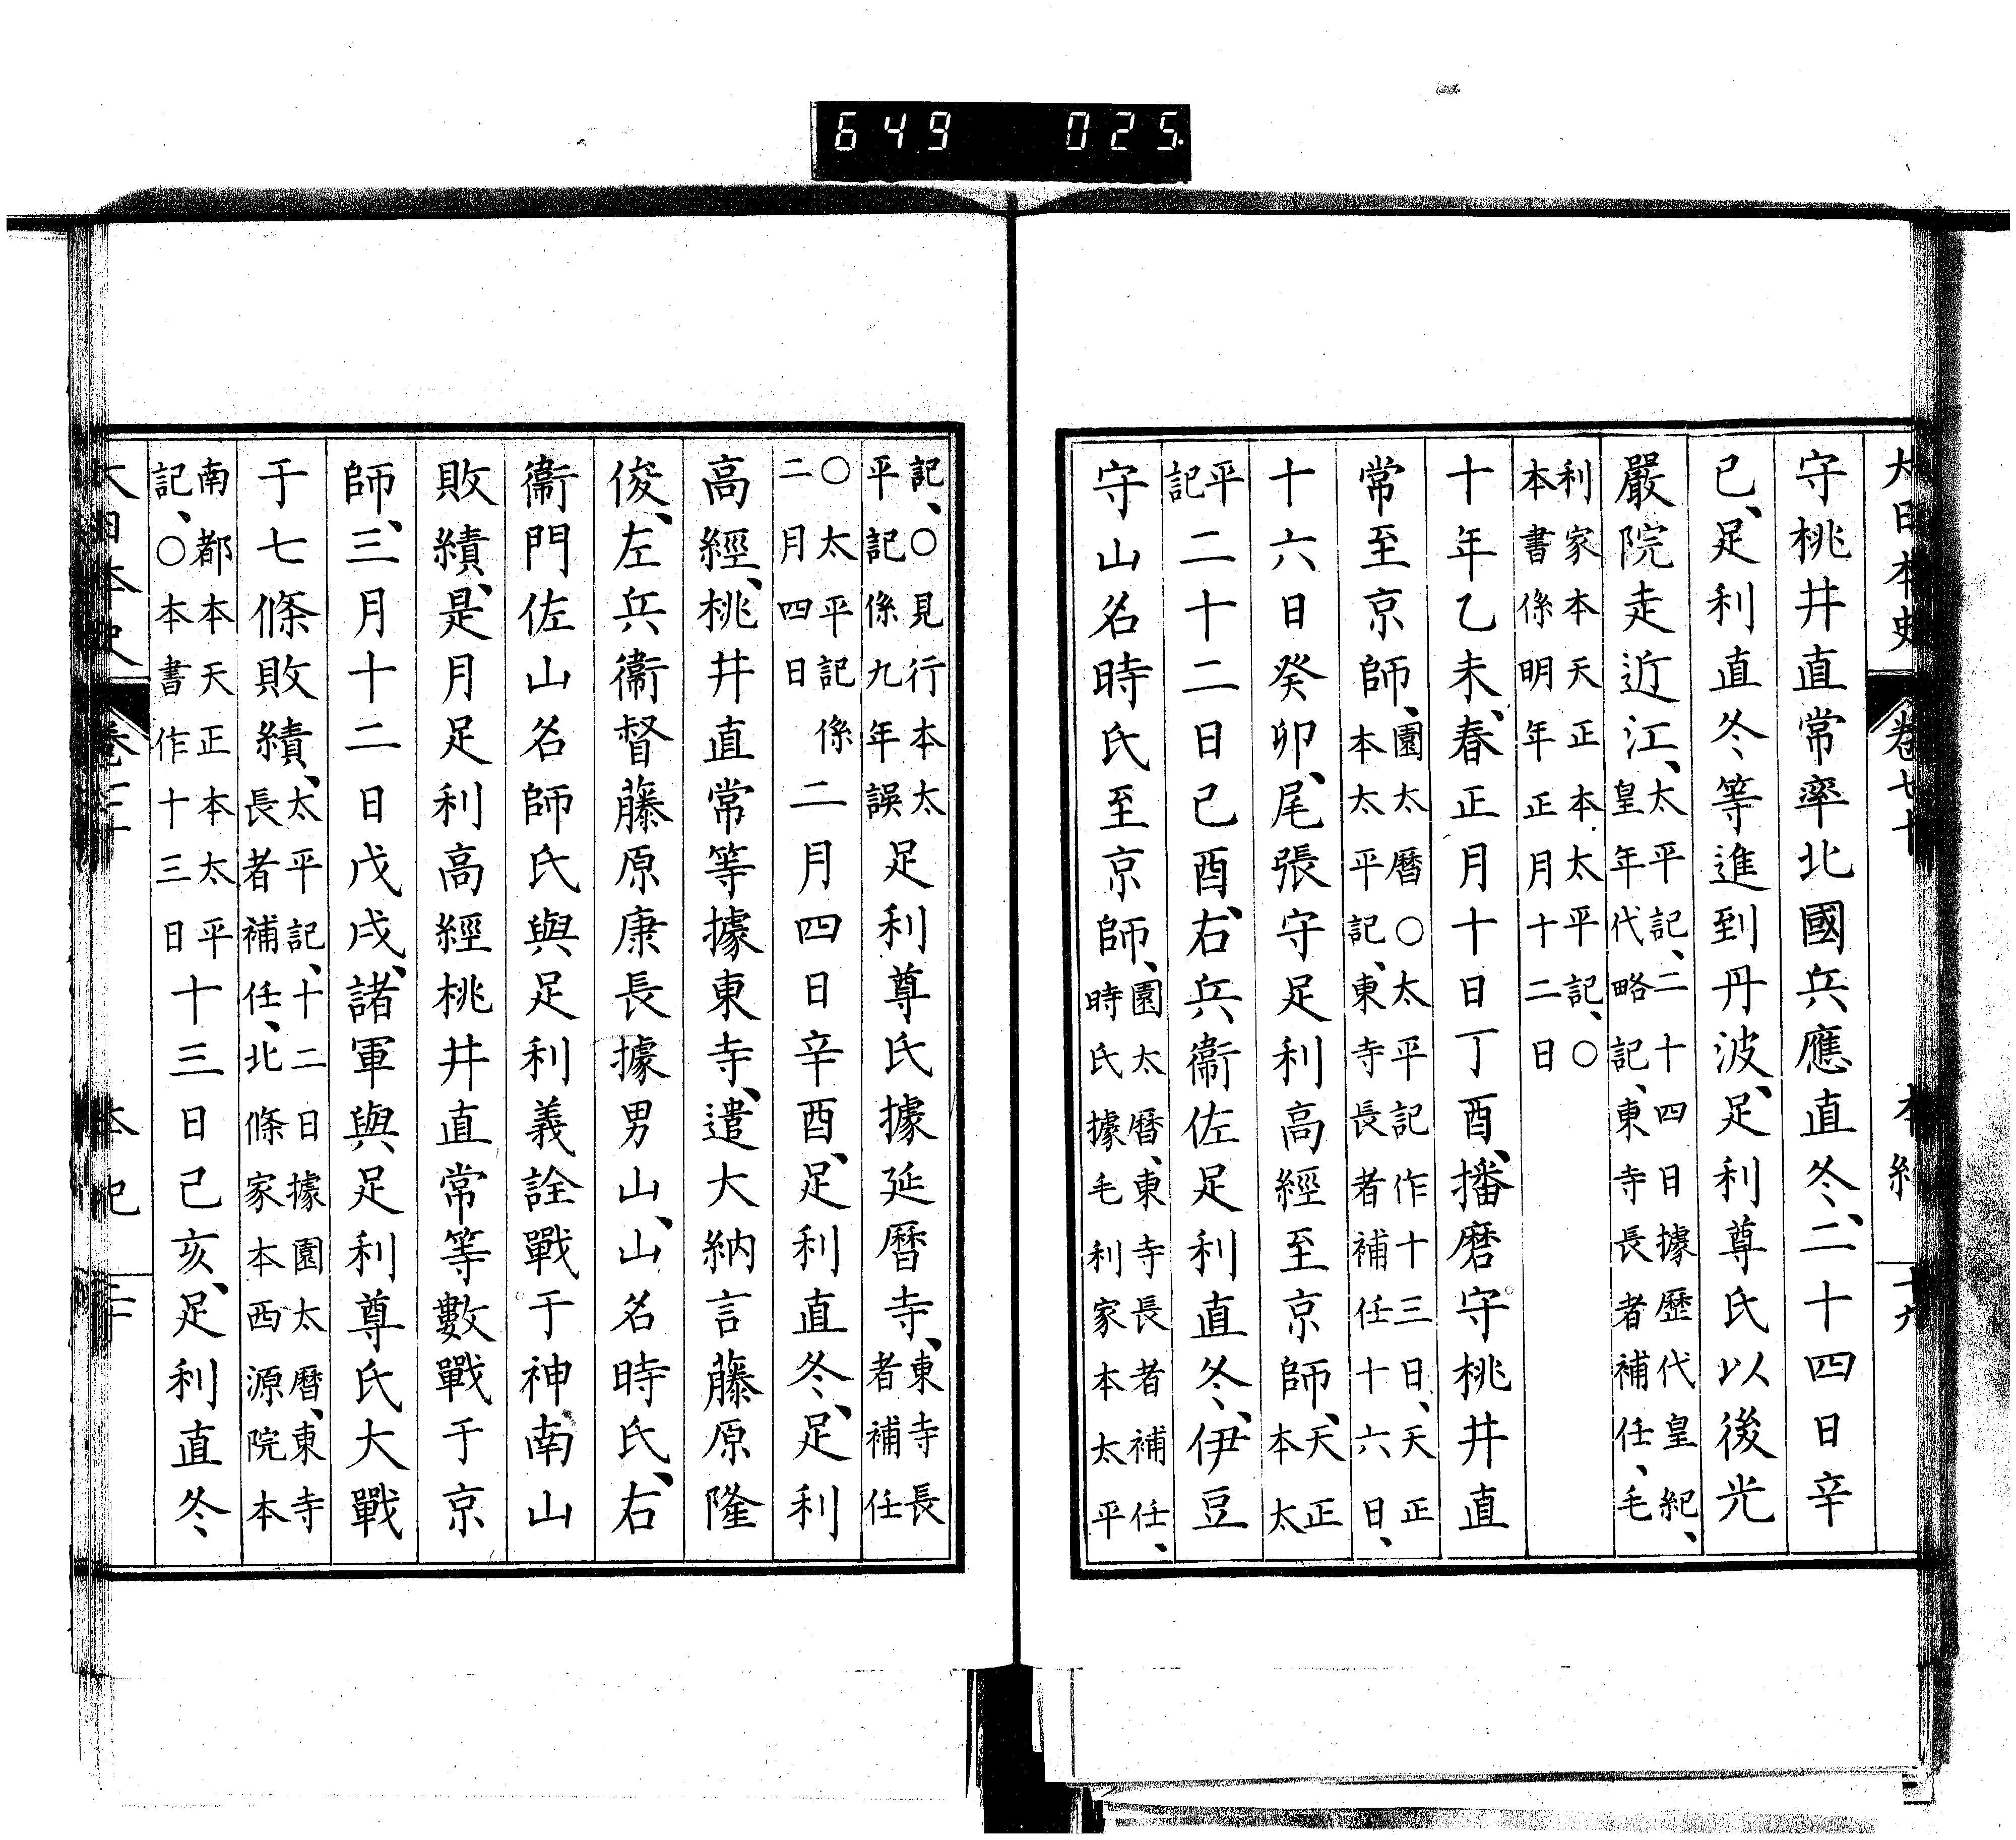 649 025
大日本史 卷七十 本紀 十九
守桃井直常率北國兵應直冬、二十四日辛
已、足利直冬等進到丹波、足利尊氏以後光
嚴院走近江、太平記、二十四日據歷代皇紀、皇年代略記、東寺長者補任、毛
利家本天正本太平記、○本書係明年正月十二日
十年乙未、春正月十日丁酉、播磨守桃井直
常至京師、園太曆○太平記作十三日、天正本太平記、東寺長者補任十六日、
十六日癸卯、尾張守足利高經至京師、天正本太
平記二十二日己酉、右兵衞佐足利直冬、伊豆
守山名時氏至京師、園太曆、東寺長者補任、時氏據毛利家本太平
記、○見行本太平記係九年誤足利尊氏據延曆寺、東寺長者補任
○太平記係二月四日二月四日辛酉、足利直冬、足利
高經、桃井直常等據東寺、遣大納言藤原隆
俊、左兵衞督藤原康長據男山、山名時氏、右
衞門佐山名師氏與足利義詮戰于神南山
敗績、是月足利高經桃井直常等數戰于京
師、三月十二日戊戌、諸軍與足利尊氏大戰
于七條敗績、太平記、十二日據園太曆、東寺長者補任、北條家本西源院本
南都本天正本太平記、○本書作十三日十三日己亥、足利直冬
大日本史 卷 本紀 二十